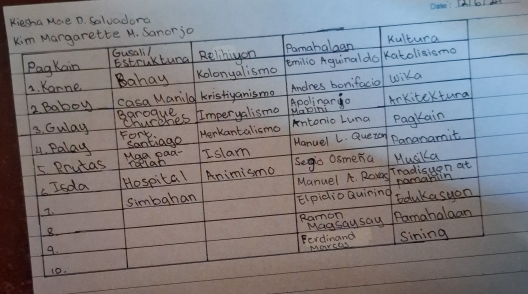 Date: 12/6/21
Kiesha Mae D. Salvadora
Kim Margarette M. Sanorjo
Pagkain | Gusali/ Estruktura | Relihiyon | Pamahalaan | Kultura
1. Karne | Bahay | Kolonyalismo | Emilio Aguinaldo | Katolisismo
2. Baboy | Casa Manila | Kristiyanismo | Andres bonifacio | Wika
3. Gulay | Baroque Churches | Imperyalismo | Apolinario Mabini | Arkitektura
4. Palay | Fort. Santiago | Merkantalismo | Antonio Luna | Pagkain
5. Prutas | Mga paa-ralan | Islam | Manuel L. Quezon | Pananamit
6. Isda | Hospital | Animismo | Sergio Osmeña | Musika
7. | Simbahan | Manuel A. Roxas | Tradisyon at pamahiin
8. | Elpidio Quirino | Edukasyon
9. | Ramon Magsaysay | Pamahalaan
10. | Ferdinand Marcos | Sining